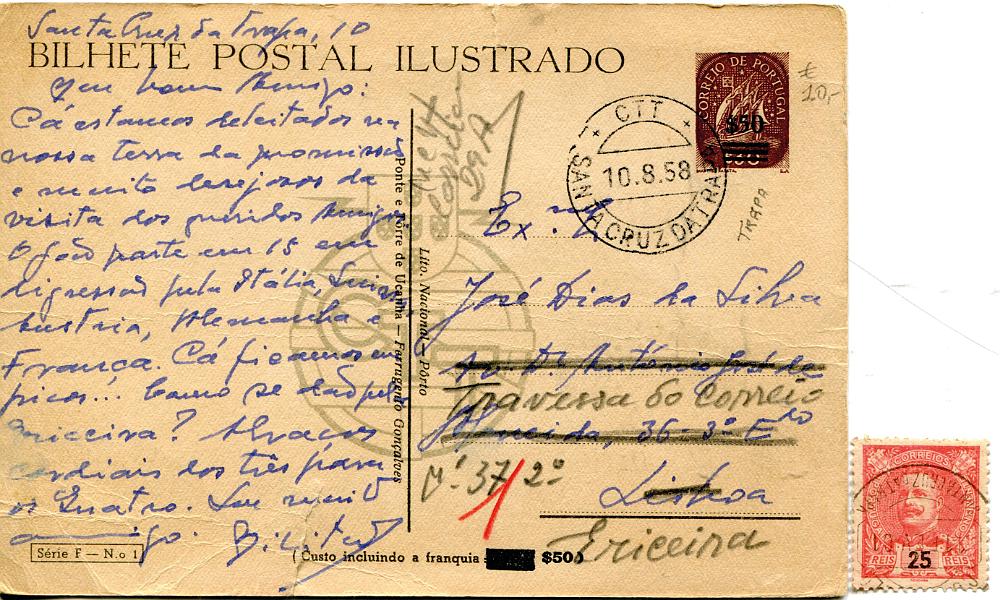 Santa Cruz da Trapa, 10
BILHETE POSTAL ILUSTRADO
Meu bom Amigo:
Cá estamos deleitados na
nossa terra da promissão
e muito desejosos da
visita dos queridos Amigos
O João parte em 15 em
digressão pela Itália, Suissa,
Austria, Alemanha e
França. Cá ficamos em
picos... Como se dão pela
Ericeira? Abraços
cordiais dos três para
os Quatro. Seu muito
amigo.
Série F — N.o 1
Ponte e Tôrre de Ucanha — Farrugento Gonçalves
Lito. Nacional - Pôrto
CORREIO DE PORTUGAL
$50
CTT
10.8.58
SANTA CRUZ DA TRAPA
€
10,-
TRAPA
Ex.mo
José Dias da Silva
Av. Dr. António José de
Travessa do Correio
Almeida, 36-3º Edo
Nº 37 2º
Lisboa
Ericeira
(Custo incluindo a franquia $50)
CORREIOS
REIS 25 REIS